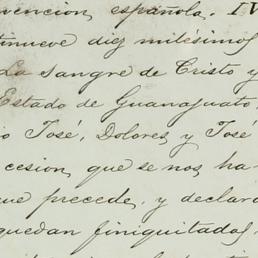 vencion española. IV
tinueve diez milésimos
La Sangre de Cristo y
Estado de Guanajuato
io José, Dolores y José
cesion que se nos ha-
ue precede, y declara
quedan finiquitados,